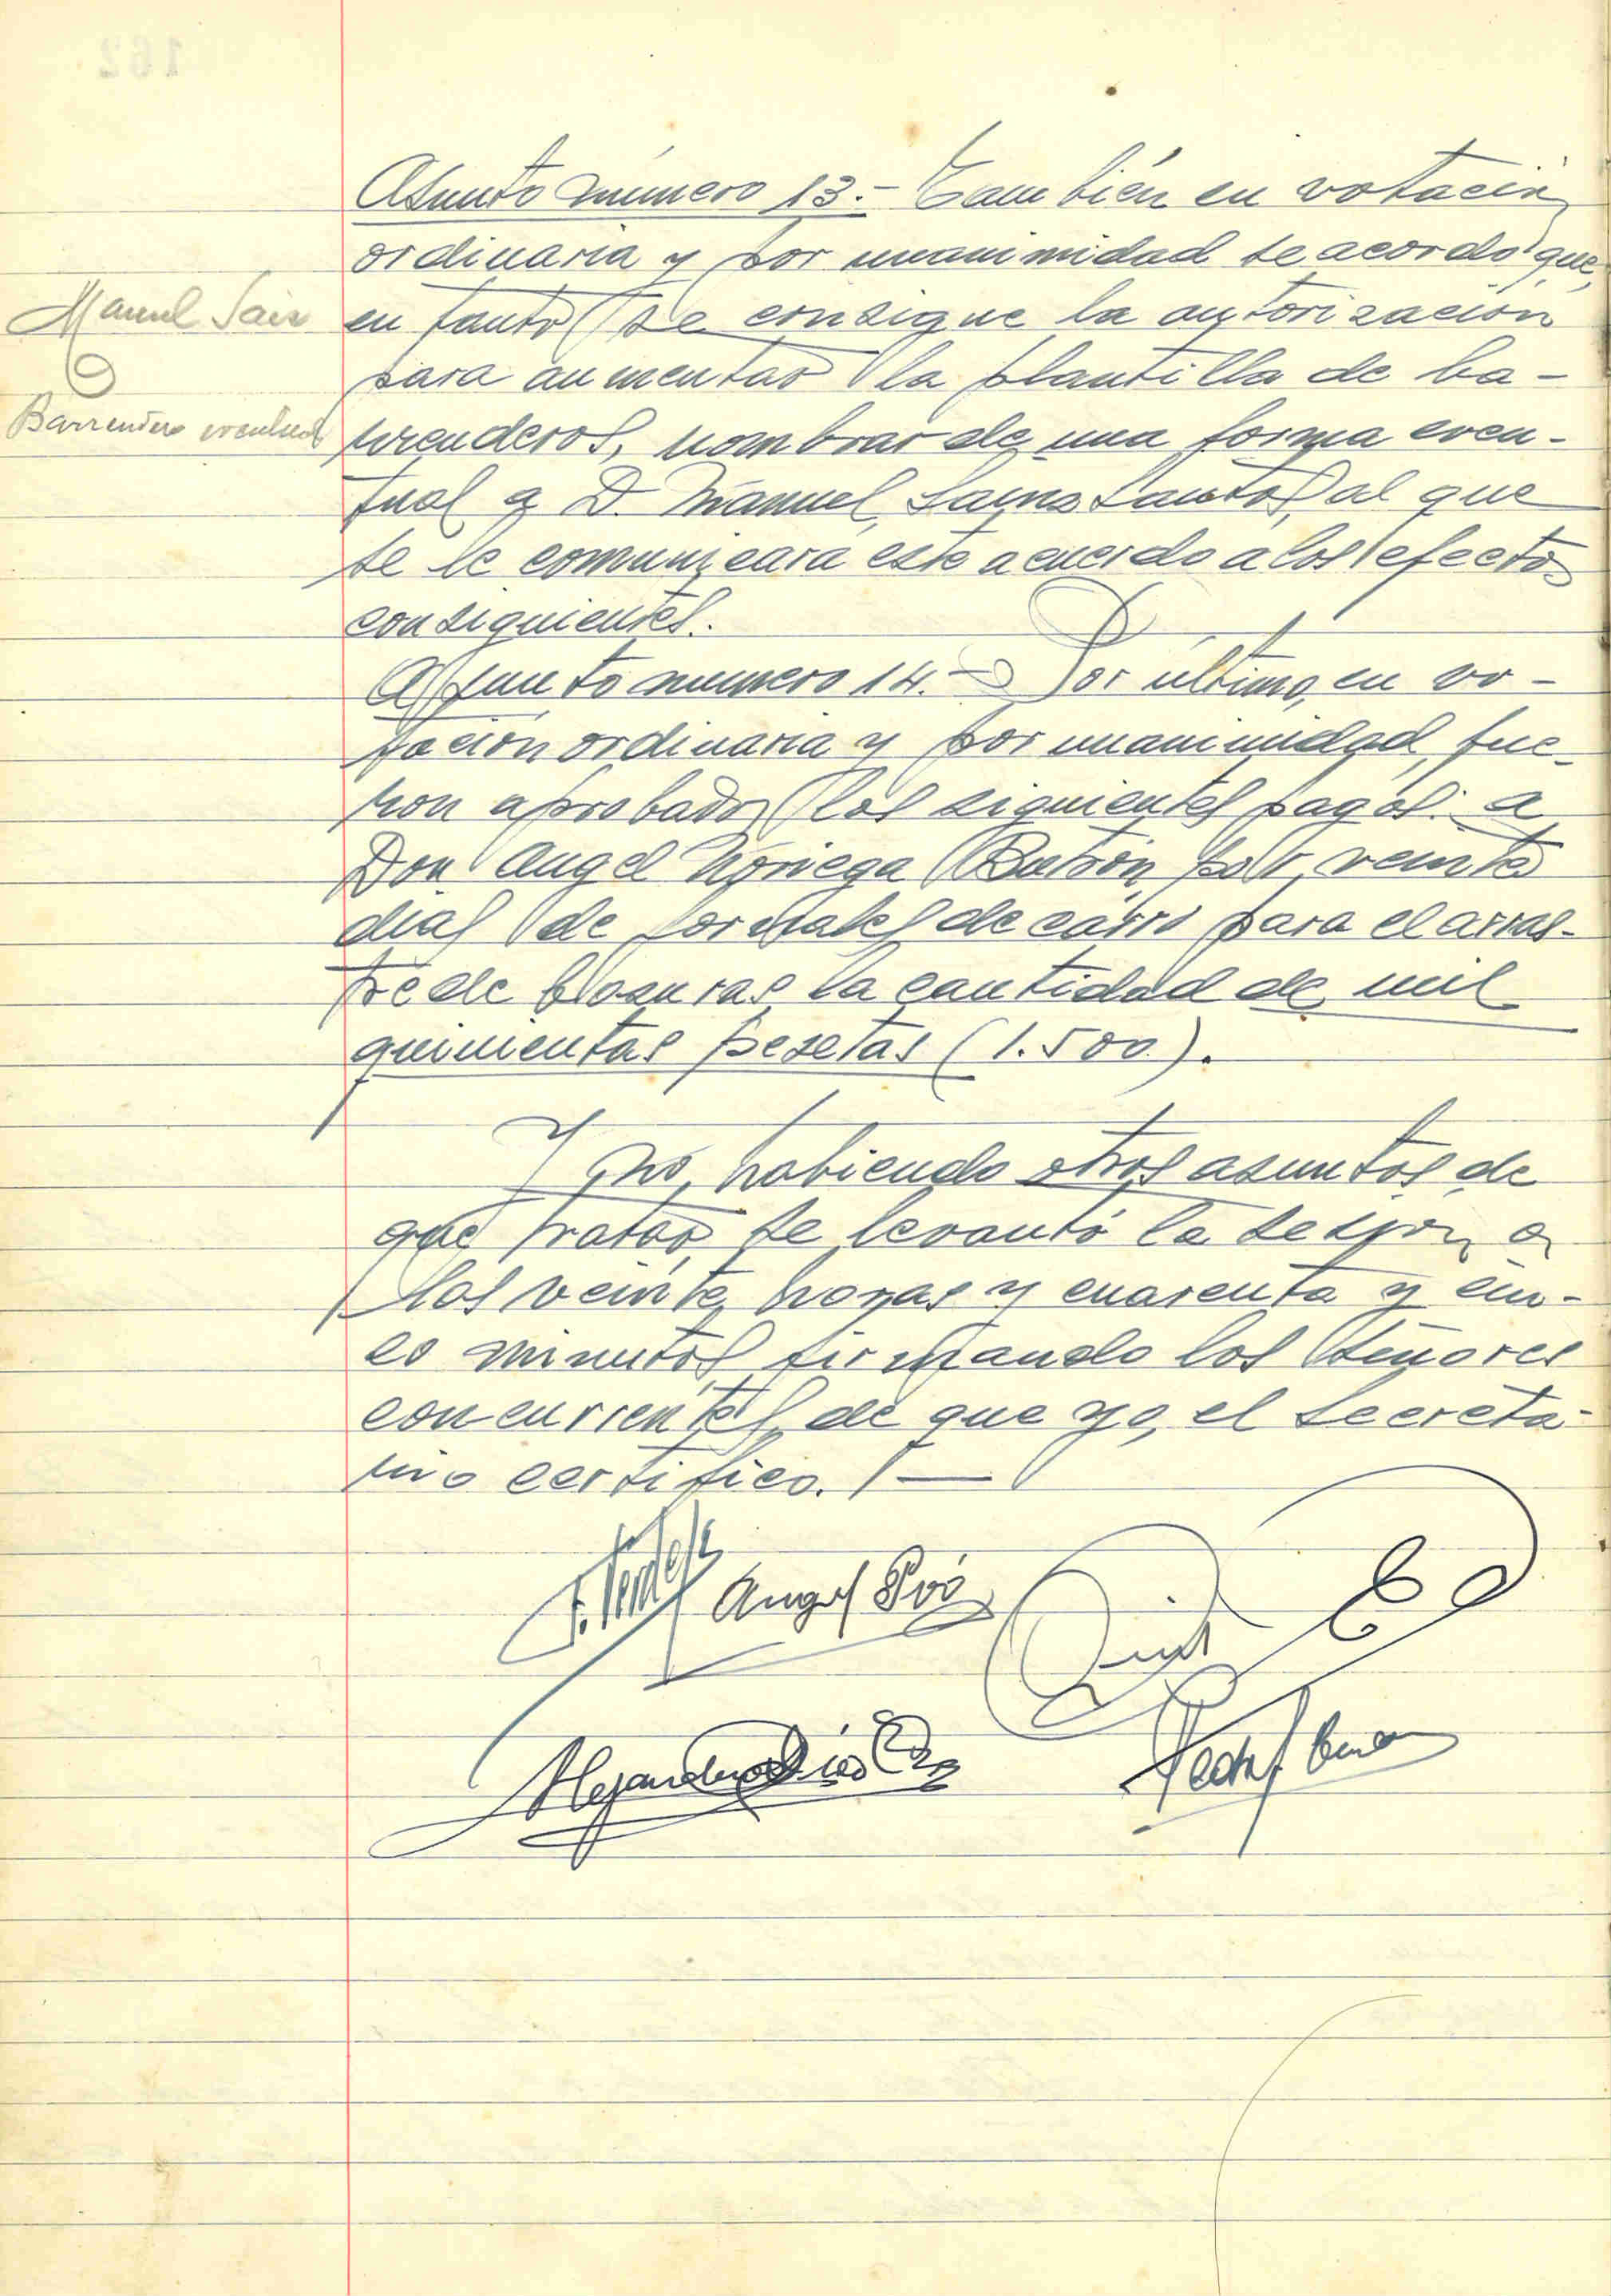 Asunto número 13.- También en votación
ordinaria y por unanimidad se acordó que,
Manuel Saiz
en tanto se consigue la autorización
para aumentar la plantilla de ba-
Barrendero eventual
rrenderos, nombrar de una forma even-
tual a D. Manuel Sainz Santos, al que
se le comunicará este acuerdo a los efectos
consiguientes.
Asunto numero 14.- Por último, en vo-
tación ordinaria y por unanimidad, fue-
ron aprobados los siguientes pagos: a
Don Angel Noriega Butrón, por veinte
dias de jornales de carro para el arras-
tre de basuras la cantidad de mil
quinientas pesetas (1.500).
Y no habiendo otros asuntos de
que tratar, se levantó la sesión a
las veinte horas y cuarenta y cin-
co minutos, firmando los señores
concurrentes, de que yo, el Secreta-
rio certifico.
Angel
Alejandro
Pedro